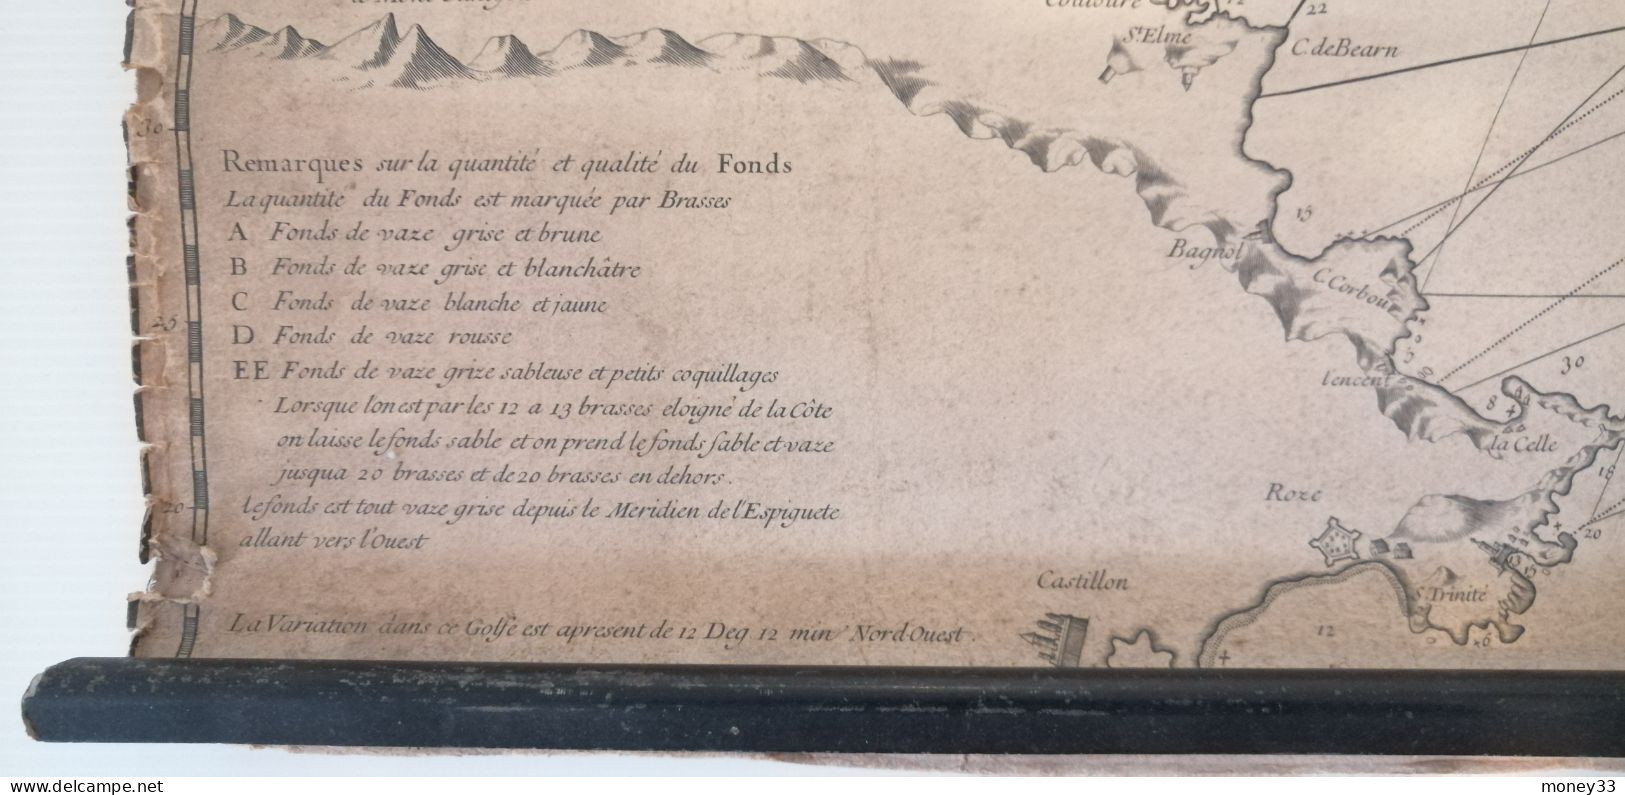 Couloure
12
22
St Elme
C. de Bearn
30
Remarques sur la quantité et qualité du Fonds
La quantité du Fonds est marquée par Brasses
A Fonds de vaze grise et brune
B Fonds de vaze grise et blanchâtre
C Fonds de vaze blanche et jaune
D Fonds de vaze rousse
EE Fonds de vaze grize sableuse et petits coquillages
Lorsque lon est par les 12 a 13 brasses eloigné de la Côte
on laisse le fonds sable et on prend le fonds sable et vaze
jusqua 20 brasses et de 20 brasses en dehors.
le fonds est tout vaze grise depuis le Meridien de l'Espiguete
allant vers l'Ouest
La Variation dans ce Golfe est apresent de 12 Deg 12 min Nord-Ouest.
25
20
15
Bagnol
C. Corbour
l'encent
30
8
la Celle
18
Roze
20
15
S. Trinité
Castillon
12
6
delcampe.net
money33